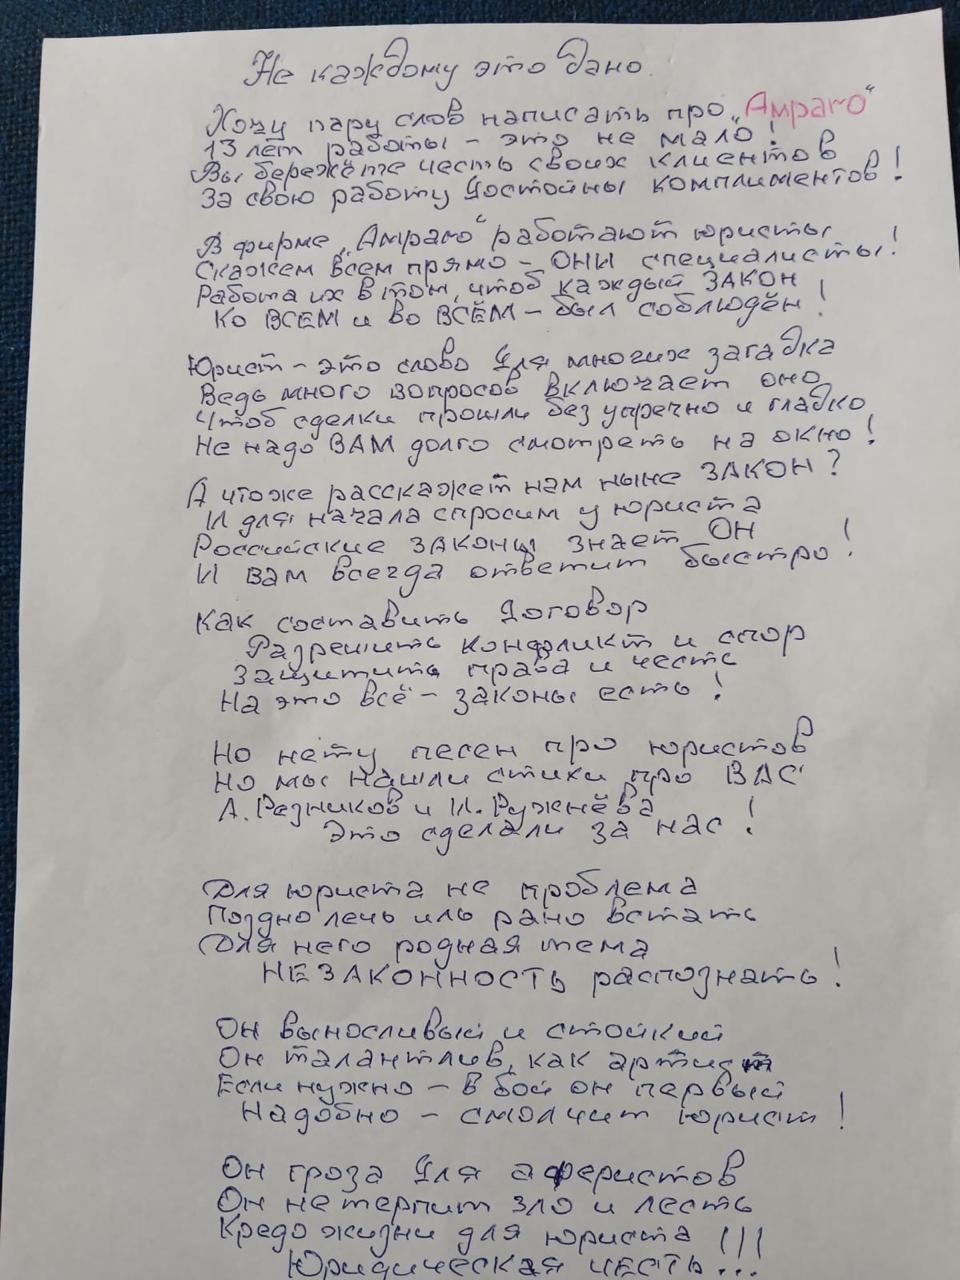 Не каждому это дано.
Хочу пару слов написать про „Амрато“
13 лет работы – это не мало!
Вы бережёте честь своих клиентов
За свою работу достойны комплиментов!
В фирме „Амрато“ работают юристы
Скажем всем прямо – ОНИ специалисты!
Работа их в том, чтоб каждый ЗАКОН
Ко ВСЕМ и во ВСЁМ – был соблюдён!
Юрист – это слово для многих загадка
Ведь много вопросов включает оно
Чтоб сделки прошли без упречно и гладко
Не надо ВАМ долго смотреть на окно!
А что же расскажет нам ныне ЗАКОН?
И для начала спросим у юриста
Российские законы знает ОН
И вам всегда ответит быстро!
Как составить договор
Разрешить конфликт и спор
Защитить права и честь
На это всё – законы есть!
Но нету песен про юристов
Но мы нашли стихи про ВАС
А. Резников и И. Ружнёва
Это сделали за нас!
Для юриста не проблема
Поздно лечь иль рано встать
Для него родная тема
НЕЗАКОННОСТЬ распознать!
Он выносливый и стойкий
Он талантлив, как артист
Если нужно – в бой он первый
Надобно – смолчит юрист!
Он гроза для аферистов
Он не терпит зло и лесть
Кредо жизни для юриста
Юридическая честь...!!!